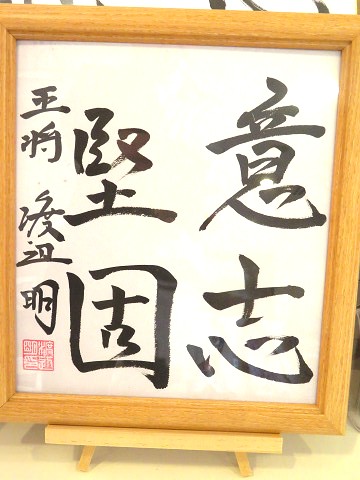 意志
堅固
王将 渡辺明